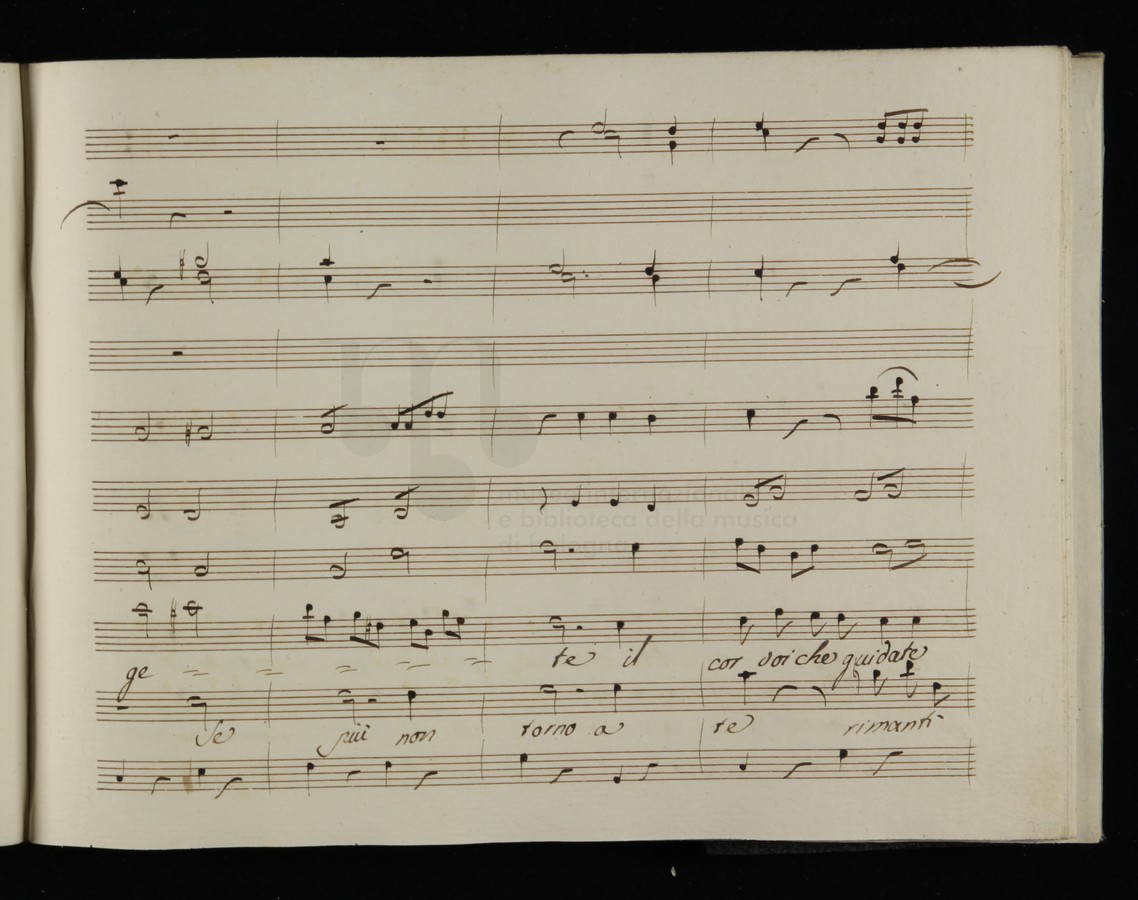 museo internazionale
e biblioteca della musica
di bologna
ge = = = = = te il cor voi che guidate
Se più non torno a te rimanti